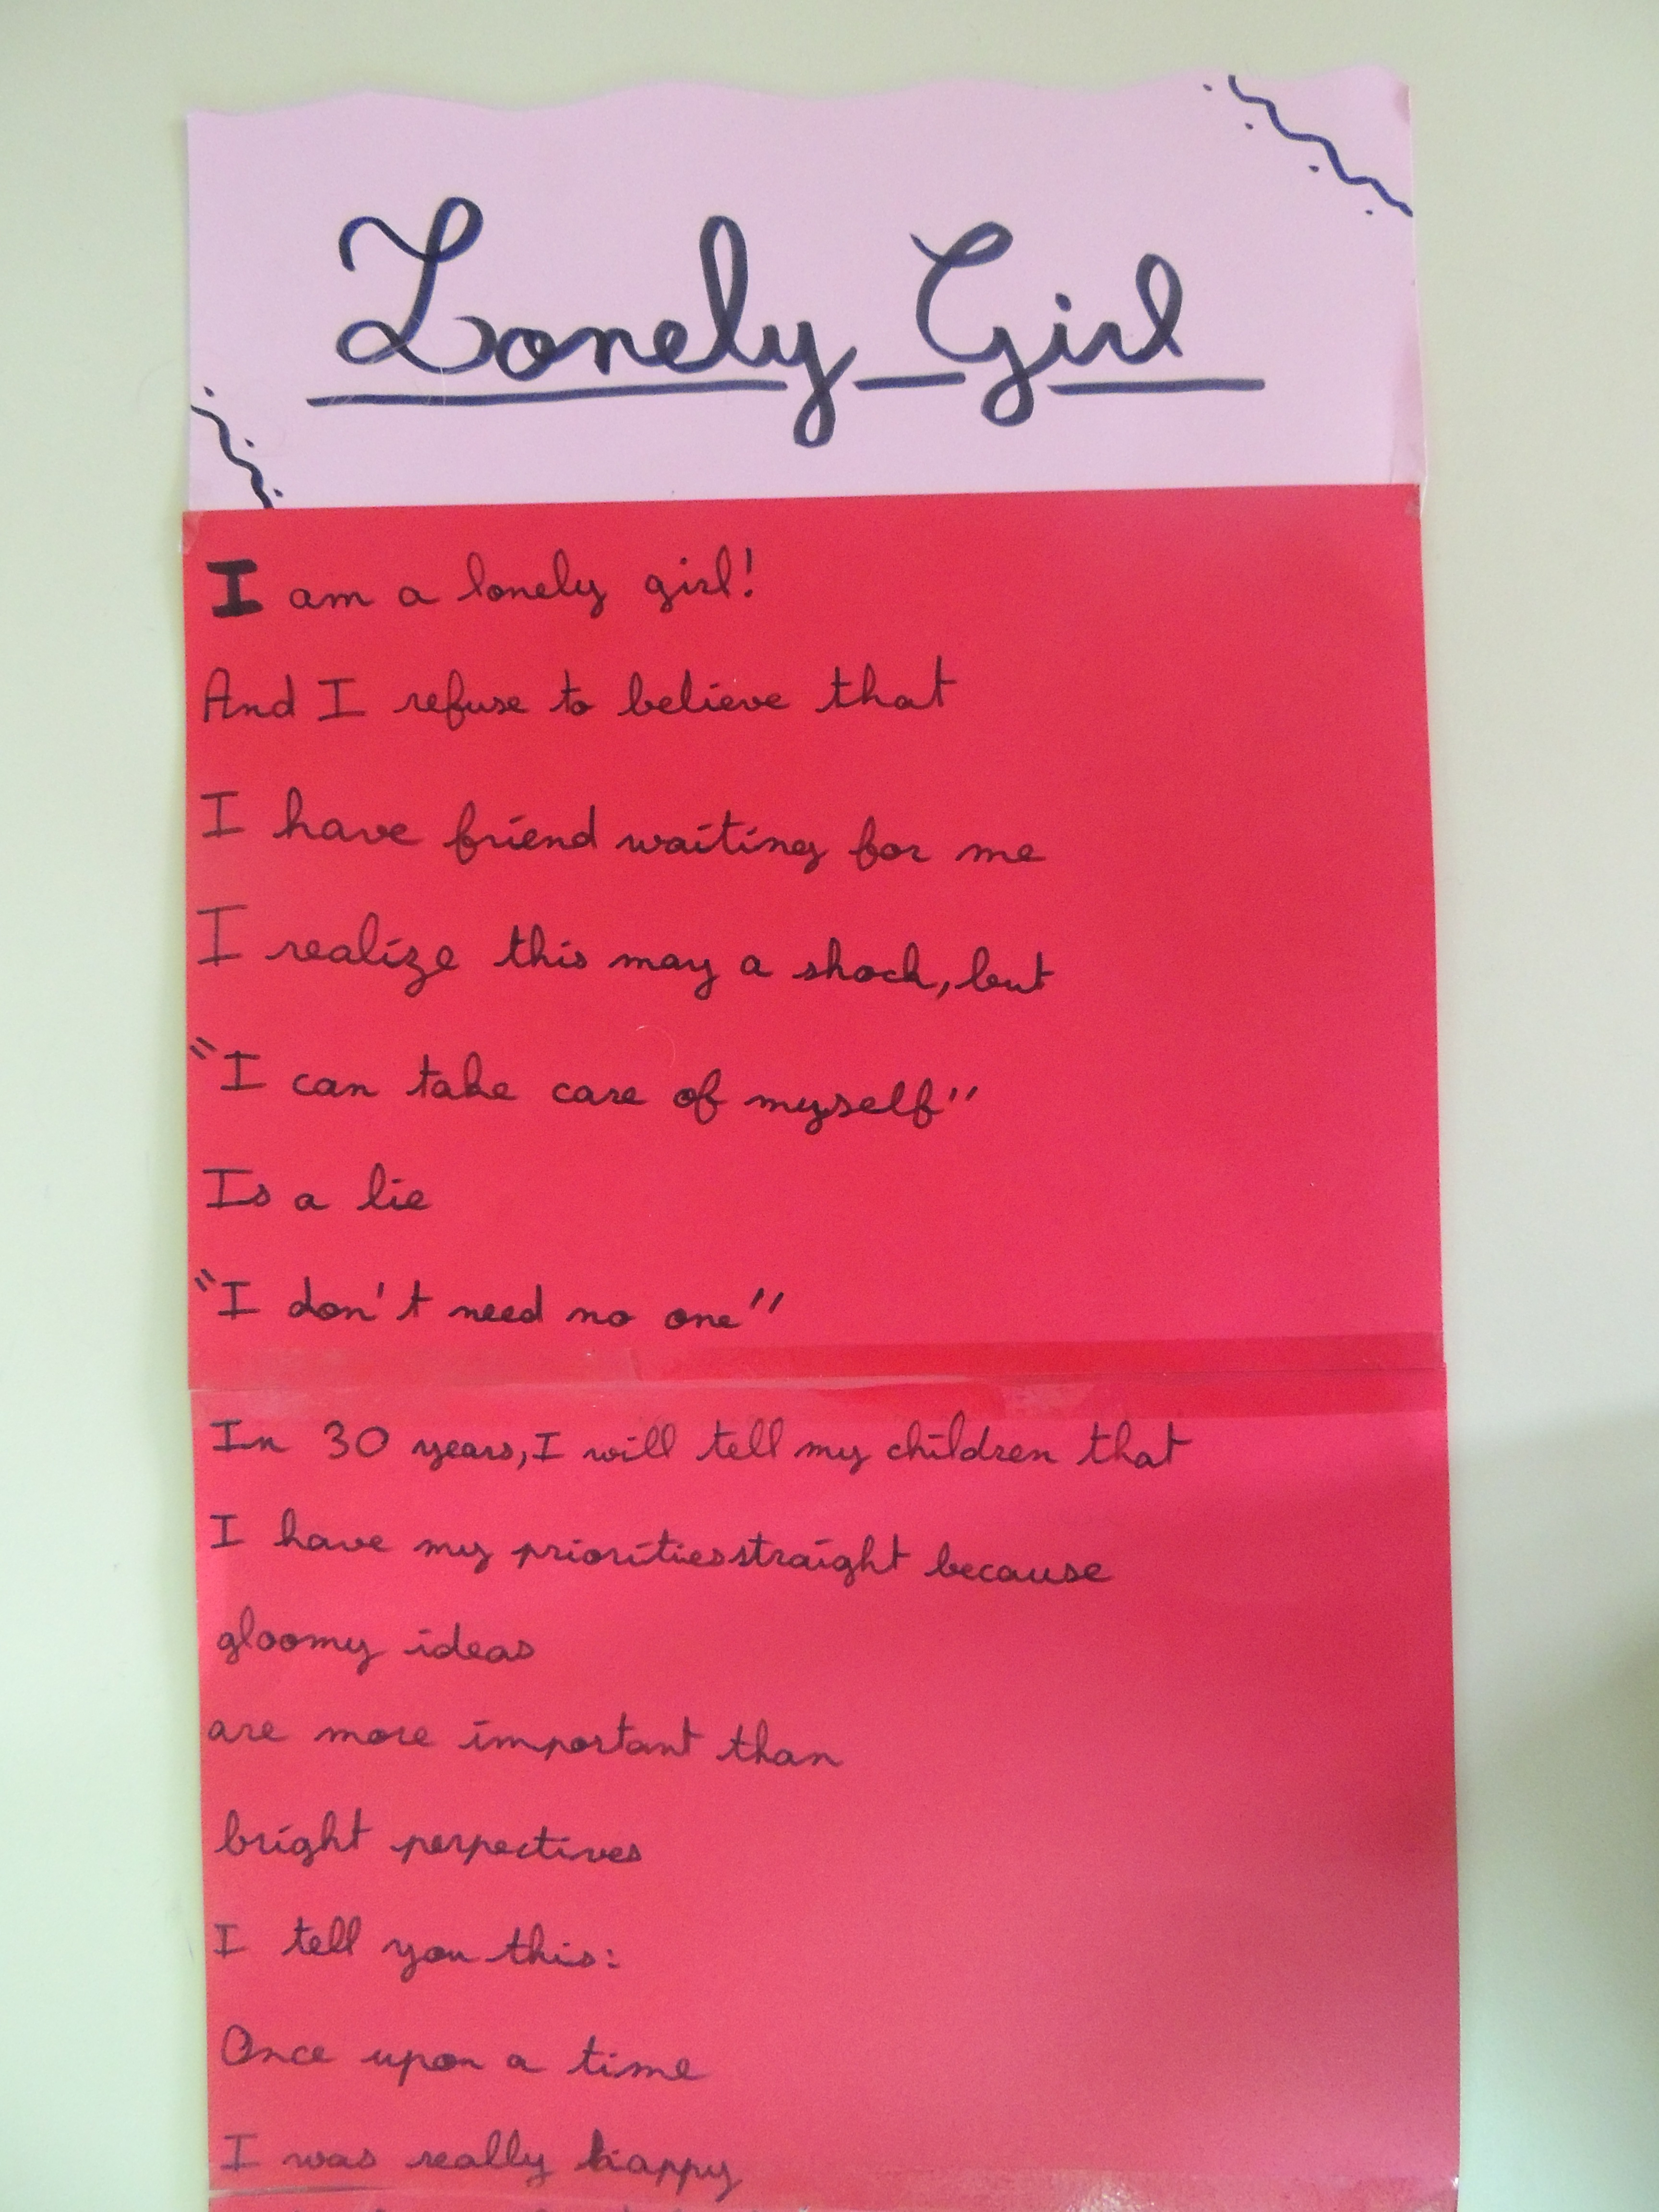 Lonely Girl
I am a lonely girl!
And I refuse to believe that
I have friend waiting for me
I realize this may a shock, but
"I can take care of myself"
Is a lie
"I don't need no one"
In 30 years, I will tell my children that
I have my priorities straight because
gloomy ideas
are more important than
bright perpectives
I tell you this:
Once upon a time
I was really happy